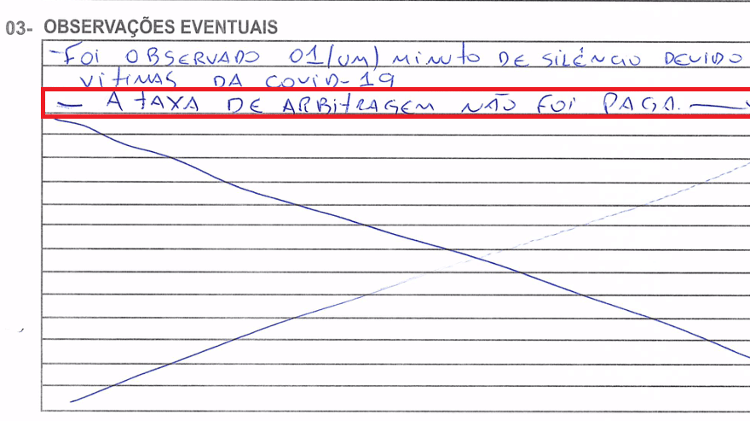 03- OBSERVAÇÕES EVENTUAIS
- FOI OBSERVADO 01 (UM) MINUTO DE SILÊNCIO DEVIDO
VÍTIMAS DA COVID-19
- A TAXA DE ARBITRAGEM NÃO FOI PAGA.